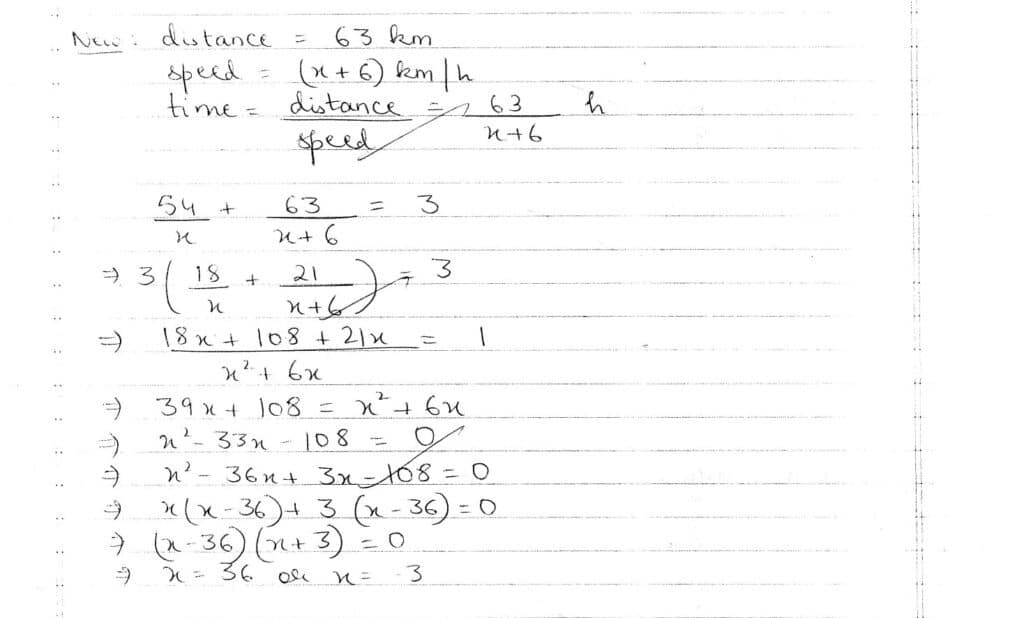 New : distance = 63 km
speed = (x + 6) km/h
time = distance/speed = 63/(x+6) h
54/x + 63/(x+6) = 3
⇒ 3(18/x + 21/(x+6)) = 3
⇒ (18x + 108 + 21x)/(x² + 6x) = 1
⇒ 39x + 108 = x² + 6x
⇒ x² - 33x - 108 = 0
⇒ x² - 36x + 3x - 108 = 0
⇒ x(x - 36) + 3(x - 36) = 0
⇒ (x - 36)(x + 3) = 0
⇒ x = 36 or x = -3